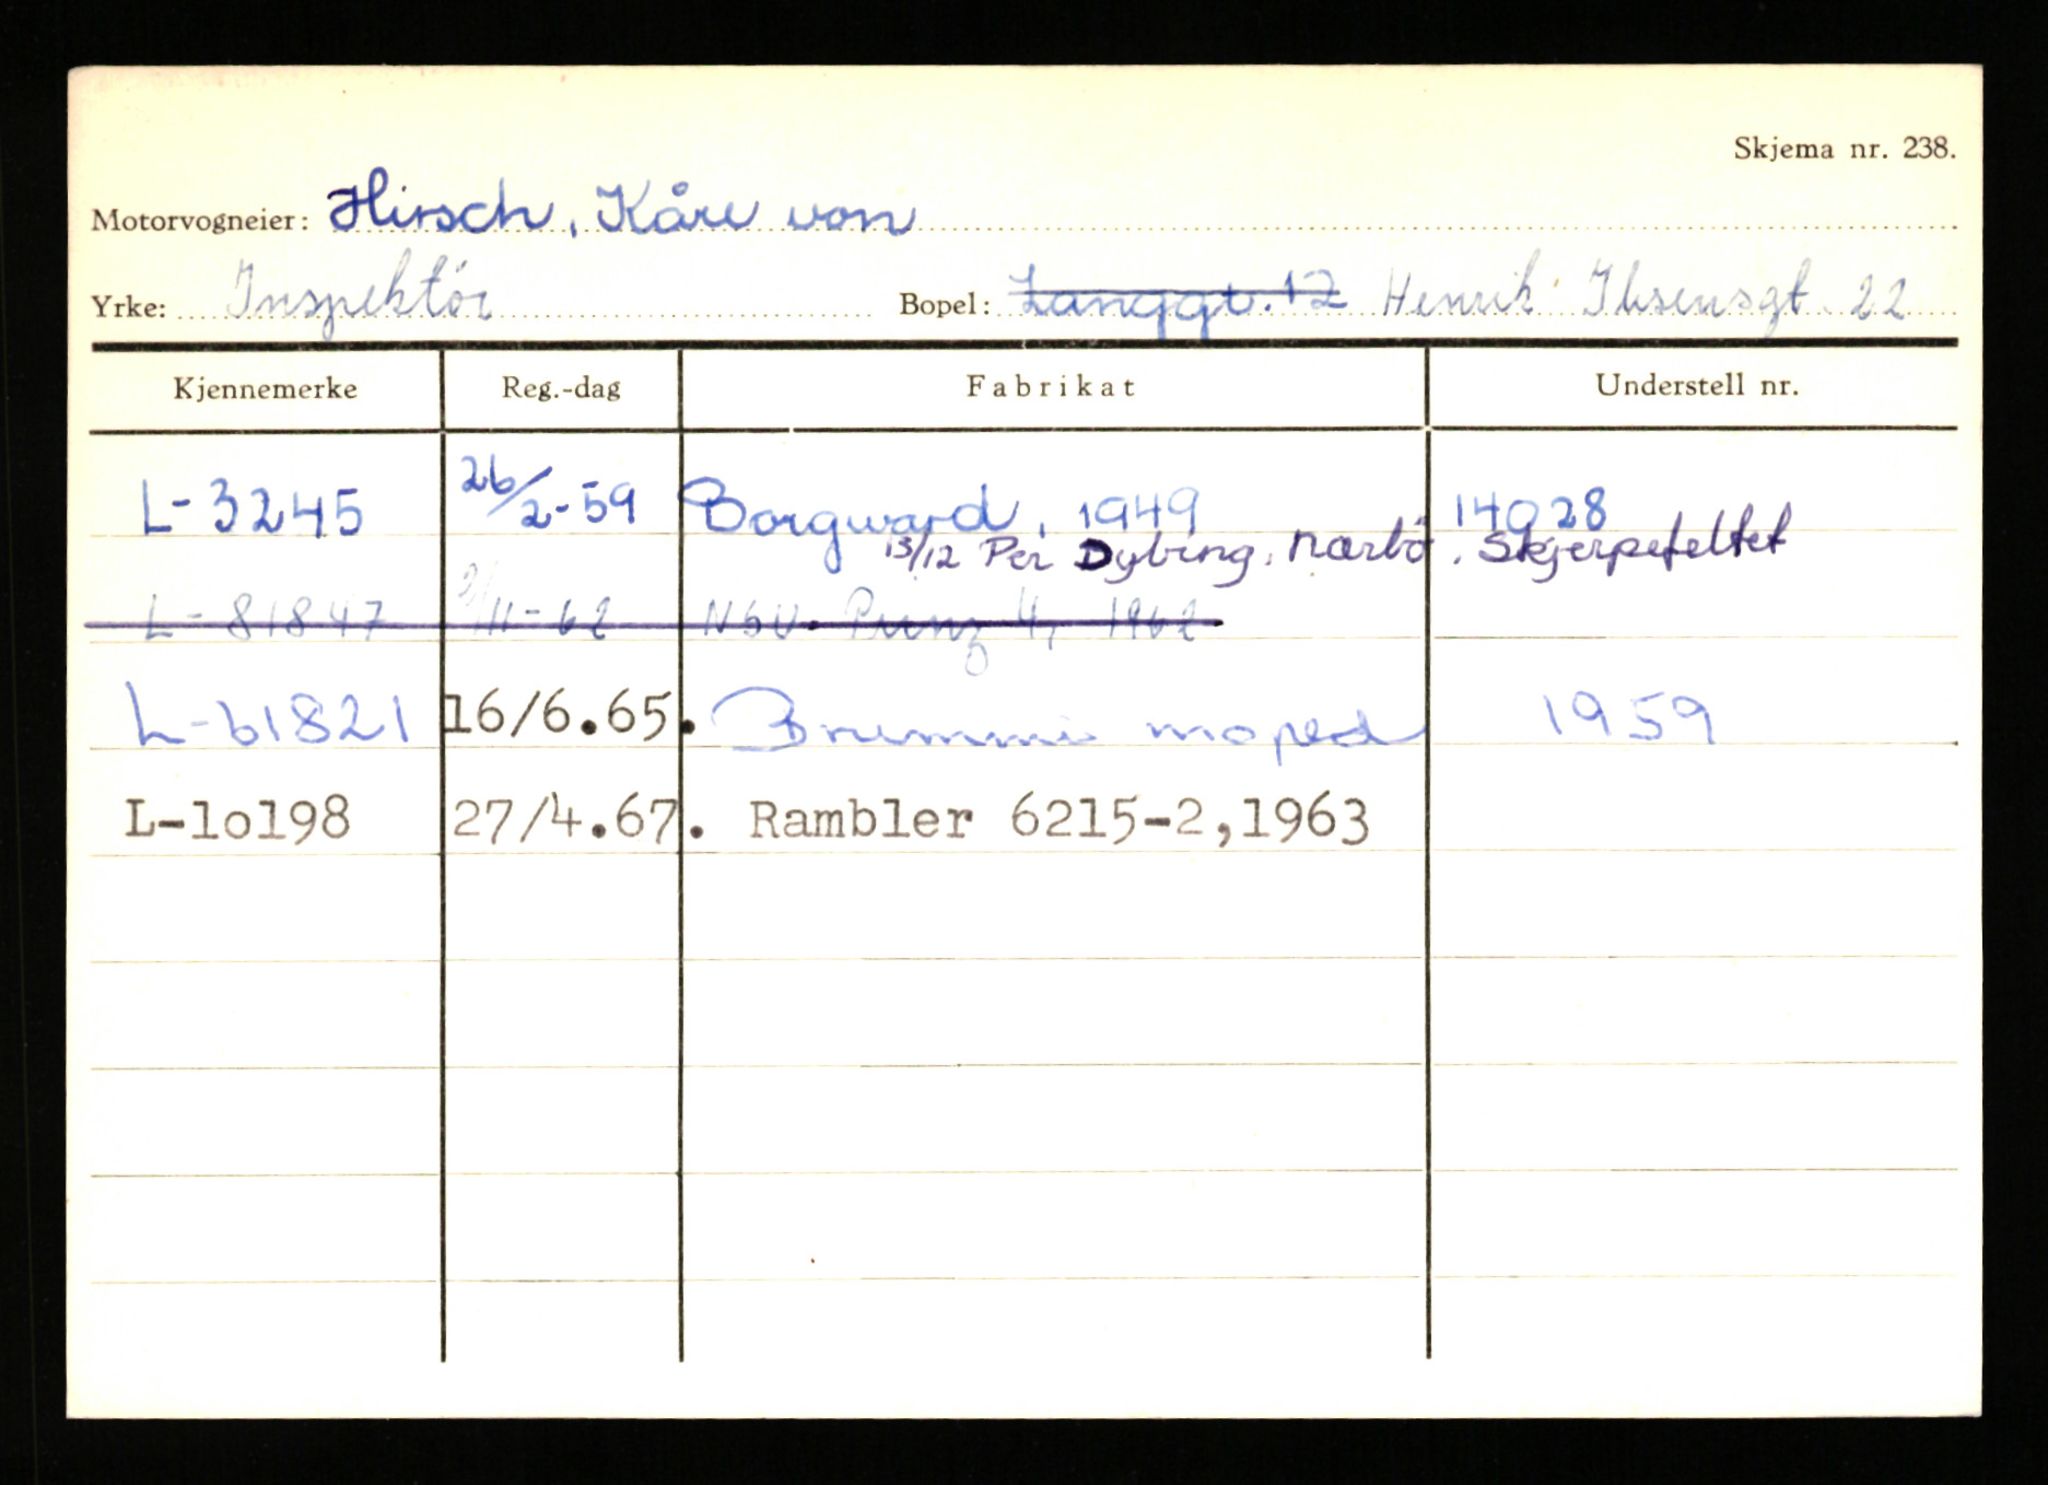 Skjema nr. 238.
Motorvogneier: Hirsch, Kåre von
Yrke: Inspektör Bopel: Langgt. 12 Henrik Ibsensgt. 22
Kjennemerke Reg.-dag Fabrikat Understell nr.
L-3245 26/2-59 Borgward, 1949 14028
13/12 Per Dybing, Nærbö, Skjerpefeltet
L-81847 2/11-62 NSU Prinz 4, 1962
L-61821 16/6.65. Brummi moped 1959
L-lo198 27/4.67. Rambler 6215-2,1963